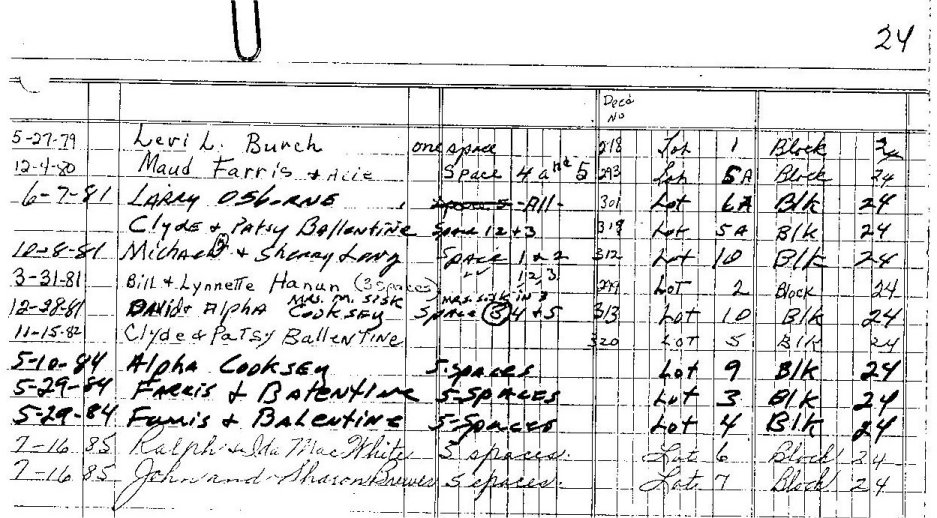 24
Deed
No
5-27-79 Levi L. Burch one space 218 Lot 1 Block 24
12-4-80 Maud Farris + Acie Space 4 and 5 293 Lot 5A Block 24
6-7-81 LARRY OSBORNE Space 5 -All- 301 Lot 6A Blk 24
Clyde + Patsy Ballentine Space 1 2 + 3 319 Lot 5A Blk 24
10-8-81 Michael + Sherry Long Space 1 + 2 312 Lot 10 Blk 24
3-31-81 Bill + Lynnette Hanun (3 spaces) 1, 2, 3 299 LOT 2 Block 24
12-28-81 David + Alpha COOKSEY MRS. M. SISK Space 3 4 + 5 MRS SISK IN 3 313 Lot 10 Blk 24
11-15-82 Clyde & PATSY BALLENTINE 320 LOT 5 Blk 24
5-10-84 Alpha Cooksey 5-Spaces Lot 9 Blk 24
5-29-84 FARRIS & BALENTINE 5-SPACES Lot 3 Blk 24
5-29-84 Farris & BALENTINE 5-Spaces Lot 4 Blk 24
7-16 85 Ralph & Ida Mae White 5 spaces. Lot 6 Block 24
7-16 85 John and Sharon Brewer 5 spaces. Lot 7 Block 24